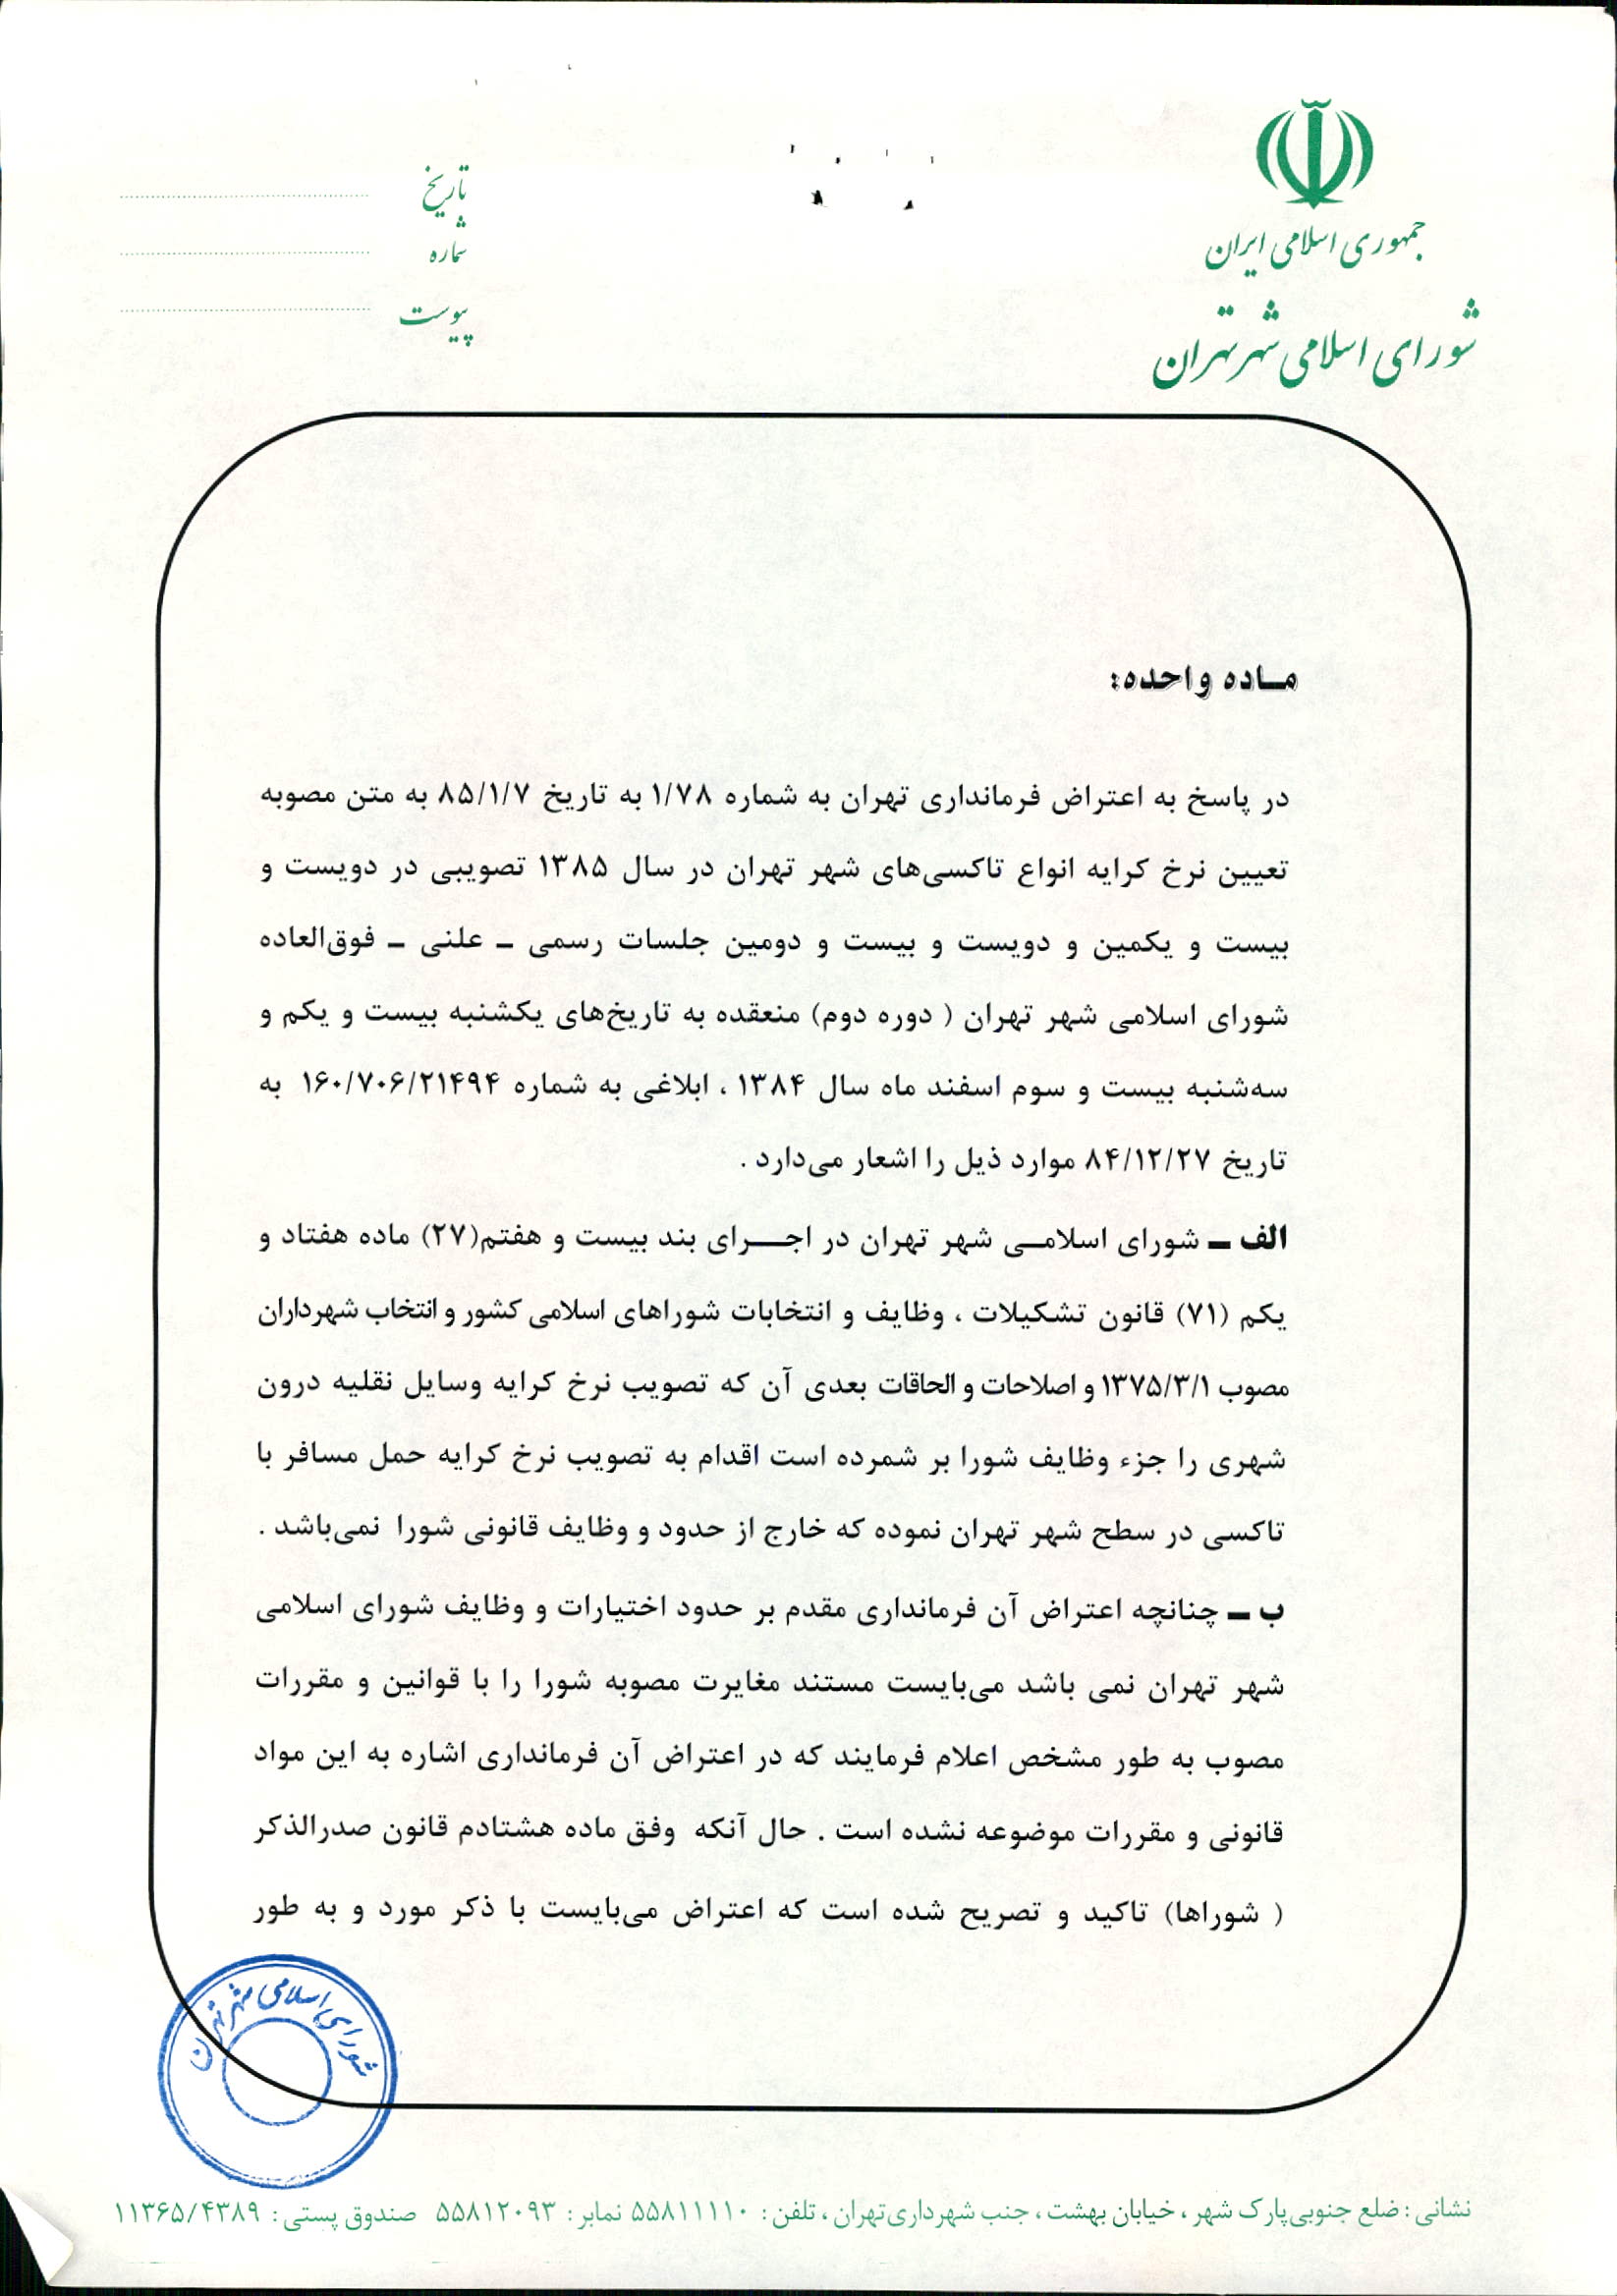 جمهوری اسلامی ایران
شورای اسلامی شهر تهران
تاریخ
شماره
پیوست
مــاده واحده:
در پاسخ به اعتراض فرمانداری تهران به شماره ۱/۷۸ به تاریخ ۸۵/۱/۷ به متن مصوبه
تعیین نرخ کرایه انواع تاکسی‌های شهر تهران در سال ۱۳۸۵ تصویبی در دویست و
بیست و یکمین و دویست و بیست و دومین جلسات رسمی ــ علنی ــ فوق‌العاده
شورای اسلامی شهر تهران ( دوره دوم) منعقده به تاریخ‌های یکشنبه بیست و یکم و
سه‌شنبه بیست و سوم اسفند ماه سال ۱۳۸۴ ، ابلاغی به شماره ۱۶۰/۷۰۶/۲۱۴۹۴ به
تاریخ ۸۴/۱۲/۲۷ موارد ذیل را اشعار می‌دارد .
الف ــ شورای اسلامــی شهر تهران در اجــــرای بند بیست و هفتم(۲۷) ماده هفتاد و
یکم (۷۱) قانون تشکیلات ، وظایف و انتخابات شوراهای اسلامی کشور و انتخاب شهرداران
مصوب ۱۳۷۵/۳/۱ و اصلاحات و الحاقات بعدی آن که تصویب نرخ کرایه وسایل نقلیه درون
شهری را جزء وظایف شورا بر شمرده است اقدام به تصویب نرخ کرایه حمل مسافر با
تاکسی در سطح شهر تهران نموده که خارج از حدود و وظایف قانونی شورا نمی‌باشد .
ب ــ چنانچه اعتراض آن فرمانداری مقدم بر حدود اختیارات و وظایف شورای اسلامی
شهر تهران نمی باشد می‌بایست مستند مغایرت مصوبه شورا را با قوانین و مقررات
مصوب به طور مشخص اعلام فرمایند که در اعتراض آن فرمانداری اشاره به این مواد
قانونی و مقررات موضوعه نشده است . حال آنکه وفق ماده هشتادم قانون صدرالذکر
( شوراها) تاکید و تصریح شده است که اعتراض می‌بایست با ذکر مورد و به طور
شورای اسلامی شهر تهران
نشانی : ضلع جنوبی پارک شهر ، خیابان بهشت ، جنب شهرداری تهران ، تلفن : ۵۵۸۱۱۱۱۰ نمابر : ۵۵۸۱۲۰۹۳ صندوق پستی : ۱۱۳۶۵/۴۳۸۹